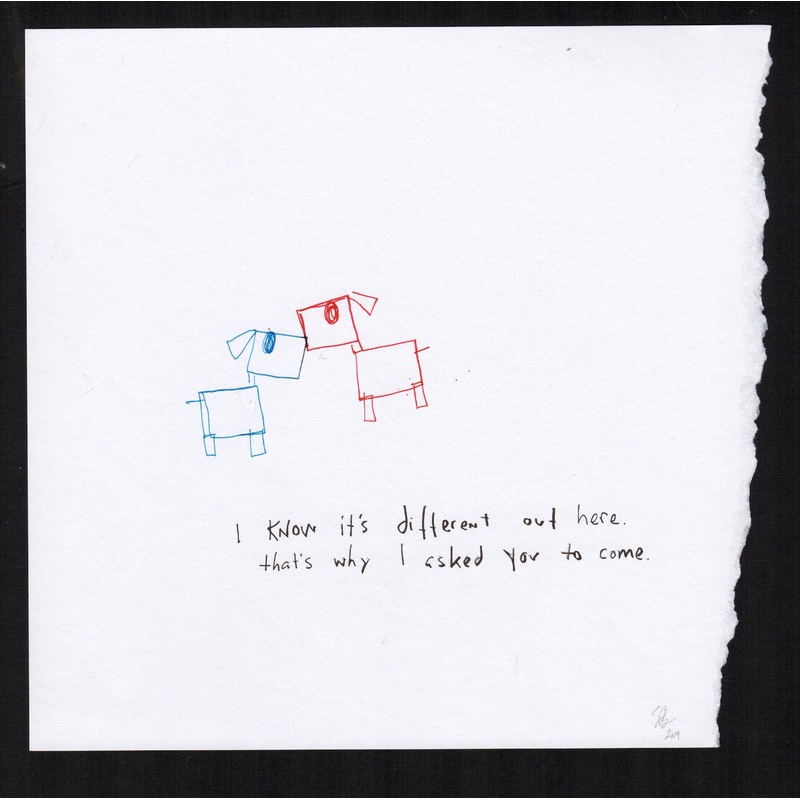 I know it's different out here.
that's why I asked you to come.
2019